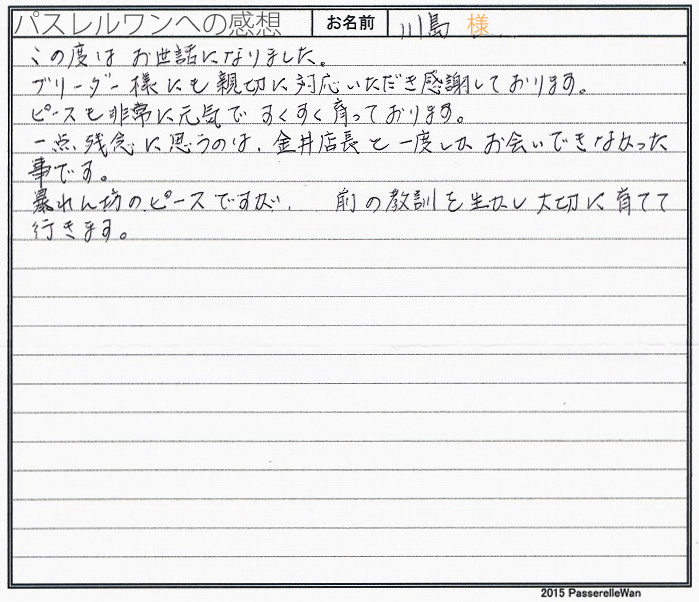 パスレルワンへの感想 お名前 川島 様
この度は お世話になりました。
ブリーダー様にも親切に対応いただき感謝しております。
ピースも非常に元気で すくすく育っております。
一点、残念に思うのは、金井店長と一度しか お会いできなかった
事です。
暴れん坊のピースですが、 前の教訓を生かし大切に育てて
行きます。
2015 PasserelleWan